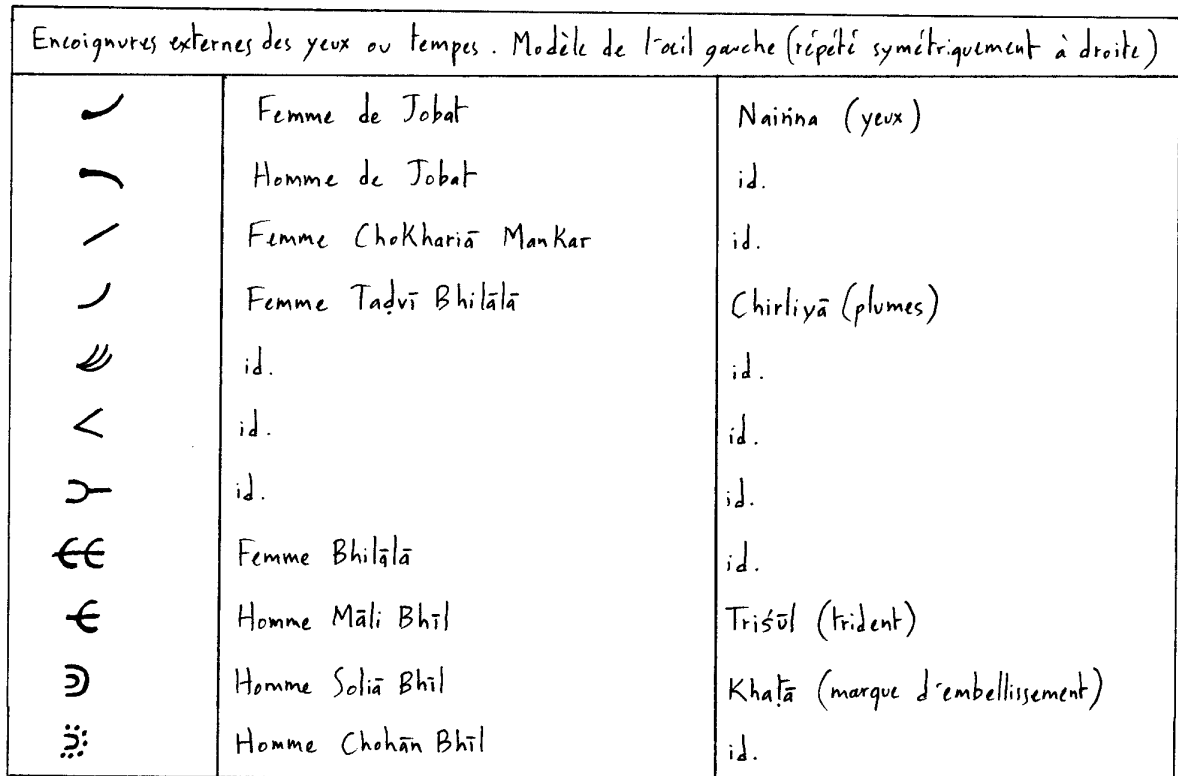 Encoignures externes des yeux ou tempes. Modèle de l'œil gauche (répété symétriquement à droite)
Femme de Jobat Naiṅna (yeux)
Homme de Jobat id.
Femme Chokhariā Mankar id.
Femme Taḍvī Bhilālā Chirliyā (plumes)
id. id.
id. id.
id. id.
Femme Bhilālā id.
Homme Māli Bhīl Triśūl (trident)
Homme Soliā Bhīl Khaṭā (marque d'embellissement)
Homme Chohān Bhīl id.